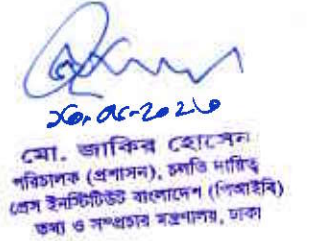 মো. জাকির হোসেন
পরিচালক (প্রশাসন), চলতি দায়িত্ব
প্রেস ইনস্টিটিউট বাংলাদেশ (পিআইবি)
তথ্য ও সম্প্রচার মন্ত্রণালয়, ঢাকা